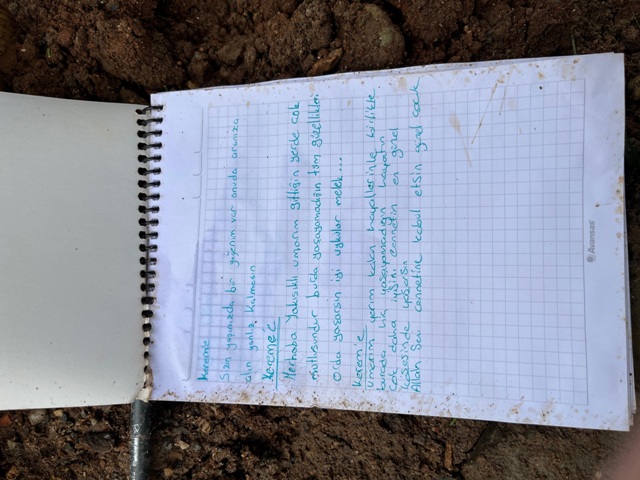 Kerem'e
Sizin yanınızda bir yiğenim var onuda aranıza
alın yanlız kalmasın
Kereme
Merhaba Yakışıklı umarım gittiğin yerde çok
mutlusundur burda yaşayamadığın tüm güzellikler
orda yaşarsın iyi uykular melek...
Kerem'e
umarım yarım kalan hayallerinle birlikte
burada hiç yaşayamadığın hayatın
çok daha iyisini cennetin en güzel
köşesinde yaşarsın
Allah Seni cennetine kabul etsin güzel çocuk
Avansas